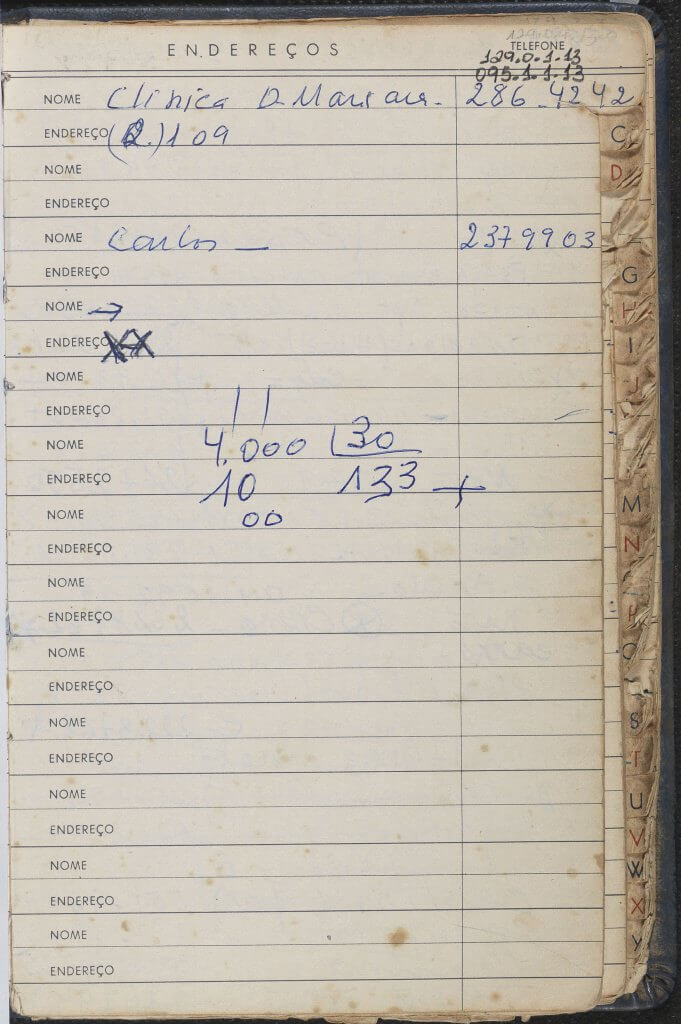 ENDEREÇOS
TELEFONE
129.0.1.13
095.1.1.13
NOME Clinica D. 286-4242
ENDEREÇO (R.) 109
NOME
ENDEREÇO
NOME Carlos — 2379903
ENDEREÇO
NOME →
ENDEREÇO
NOME
ENDEREÇO
NOME 4.000 30
ENDEREÇO 10 133
NOME 00
ENDEREÇO
NOME
ENDEREÇO
NOME
ENDEREÇO
NOME
ENDEREÇO
NOME
ENDEREÇO
NOME
ENDEREÇO
NOME
ENDEREÇO
C
D
G
H
I
J
M
N
P
Q
S
T
U
V
W
X
Y